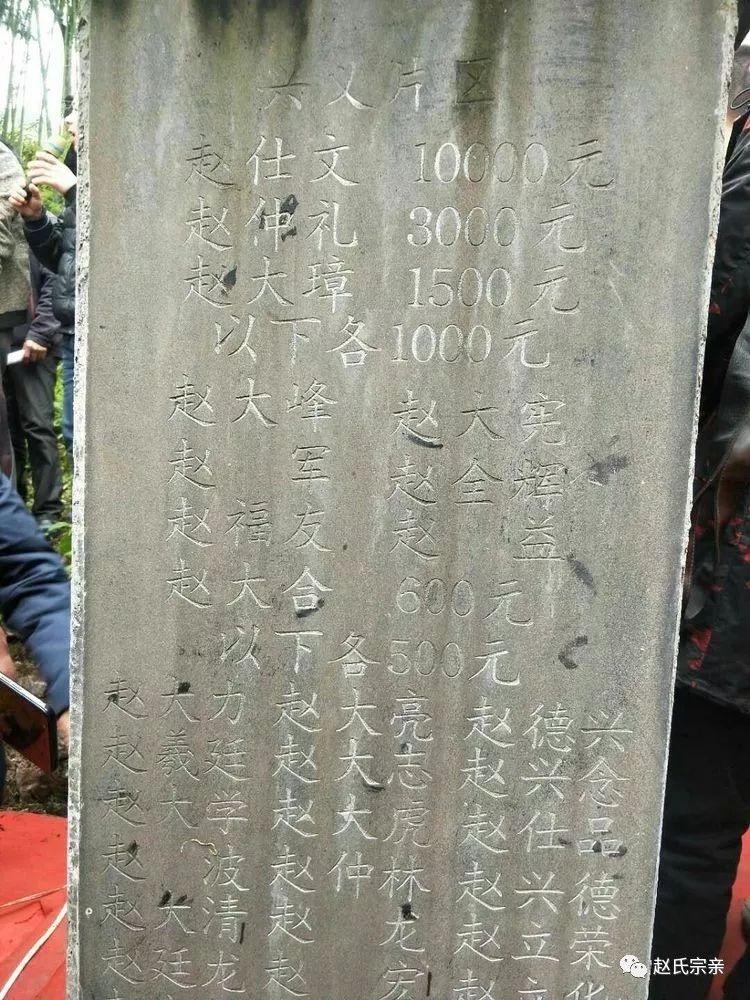 兴义片区
赵仕文 10000元
赵仲礼 3000元
赵大璋 1500元
以下各1000元
赵大峰 赵大宪
赵 军 赵全辉
赵福友 赵 益
赵大合 600元
以下各500元
赵大力 赵大亮 赵德兴
赵羲廷 赵大志 赵兴念
赵大学 赵大虎 赵仕品
赵 波 赵仲林 赵兴德
赵大清 赵 龙 赵立荣
赵廷龙 赵
赵氏宗亲